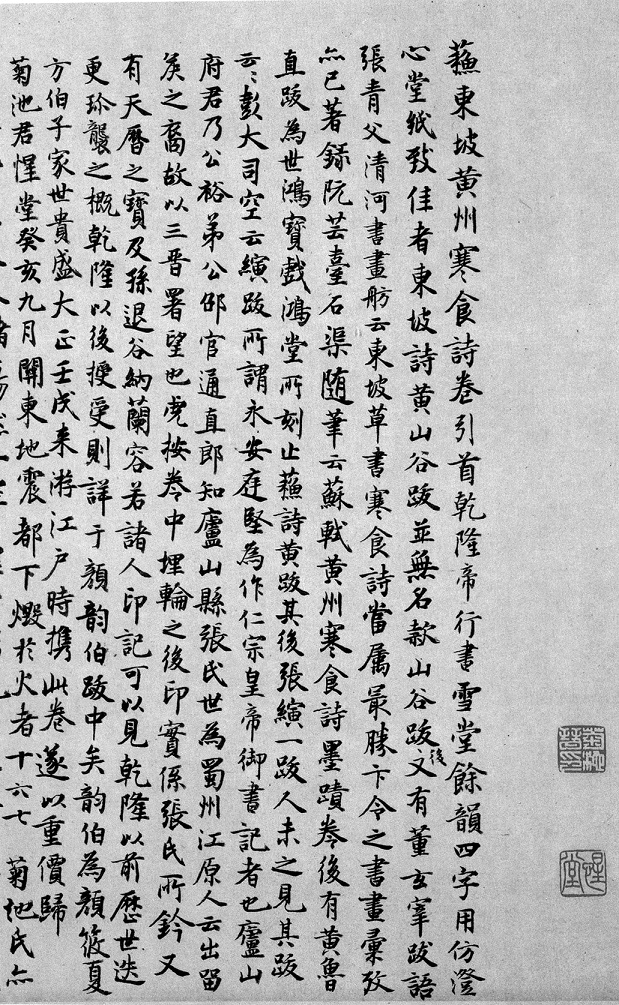 蘓東坡黄州寒食詩卷引首乾隆帝行書雪堂餘韻四字用仿澄
心堂紙致佳者東坡詩黄山谷跋並無名款山谷跋後又有董玄宰跋語
張青父清河書畫舫云東坡草書寒食詩當屬最勝卞令之書畫彙攷
亦已著録阮芸臺石渠随筆云蘇軾黄州寒食詩墨蹟卷後有黄魯
直跋為世鴻寶戲鴻堂所刻止蘓詩黄跋其後張縯一跋人未之見其跋
云〻彭大司空云縯跋所謂永安庭堅為作仁宗皇帝御書記者也廬山
府君乃公裕弟公邵官通直郎知廬山縣張氏世為蜀州江原人云出留
矦之裔故以三晋署望也虎按卷中埋輪之後印實係張氏所鈐又
有天暦之寶及孫退谷納蘭容若諸人印記可以見乾隆以前歴世迭
更珎襲之概乾隆以後授受則詳于顔韵伯跋中矣韵伯為顔筱夏
方伯子家世貴盛大正壬戌来游江戸時携此卷遂以重價歸
菊池君惺堂癸亥九月關東地震都下燬於火者十六七菊池氏亦
惺堂